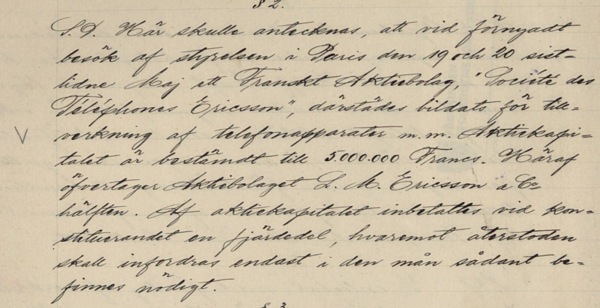 § 2.
S.D. Här skulle antecknas, att vid förnyadt
besök af styrelsen i Paris den 19 och 20 sist-
lidne Maj ett Franskt Aktiebolag, "Société des
Téléphones Ericsson", därstädes bildats för till-
verkning af telefonapparater m.m. Aktiekapi-
talet är bestämdt till 5.000.000 Francs. Häraf
öfvertager Aktiebolaget L. M. Ericsson & Co
hälften. Af aktiekapitalet inbetaltes vid kon-
stituerandet en fjärdedel, hvaremot återstoden
skall infordras endast i den mån sådant be-
finnes nödigt.
§ 3.